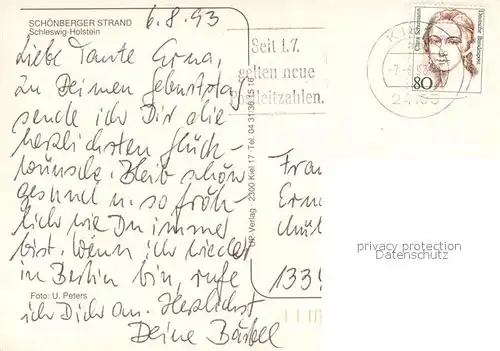 SCHÖNBERGER STRAND
Schleswig-Holstein
6.8.93
Liebe Tante Erna,
zu Deinem Geburtstag
sende ich Dir die
herzlichsten Glück-
wünsche. Bleib schön
gesund u. so fröh-
lich wie Du immer
bist. Wenn ich wieder
in Berlin bin, rufe
ich Dich an. Herzlichst
Deine Bärbel
Foto: U. Peters
Verlag 2300 Kiel 17 Tel. 04 31/36
Seit 1.7.
gelten neue
leitzahlen.
Deutsche Bundespost
Clara Schumann
80
Frau
Erna
1335
privacy protection
DATENSCHUTZ